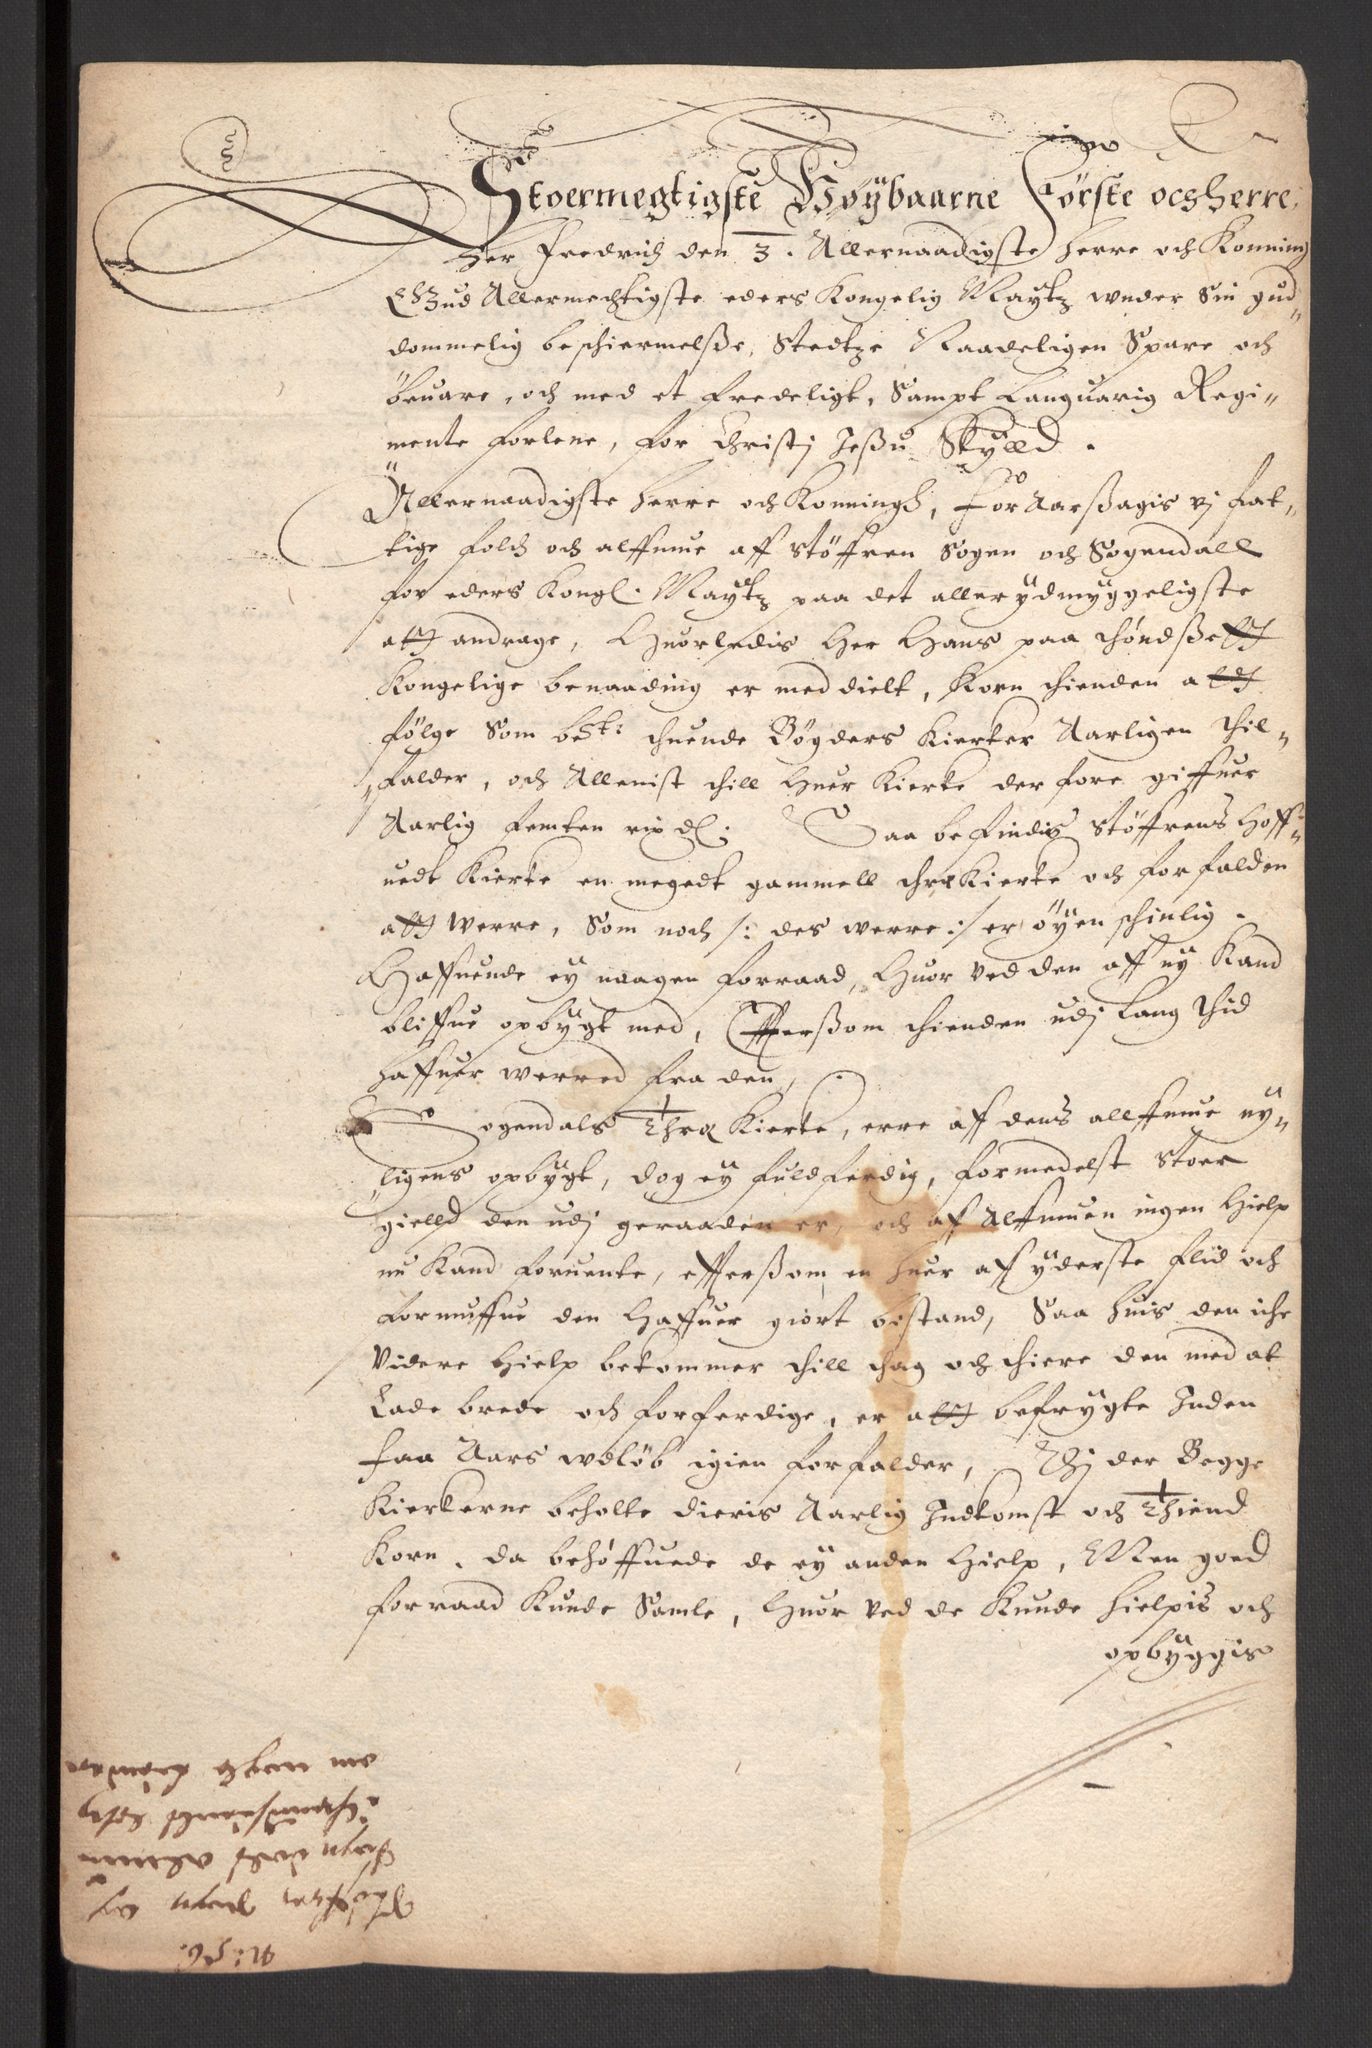 Stoermegtigste Høÿbaarne Første och Herre,
Her Fredrich den 3. Allernaadigste Herre och Konning
Gud Allermechtigste eders Kongelig Maytz under Sin gud„
dommelig beschiermelße, Stedtze Naadeligen Spare och
beuare, och med et fredeligt, Sampt Languarig Regi„
mente forlene, for Christj Jeßu Skÿlld.
Allernaadigste Herre och Konningh, For Aarßagis vj fat„
tige folch och alfmue aff Støffren Sogen och Sogendall
for eders Kongl. Maytz paa det allerydmyggeligste
att andrage, Huorledis Her Hans paa
Kongelige benaading er meddielt, Korn thienden att
følge Som beste: thuende Bøgders Kierker Aarligen thil„
falder, och Allenist thill huer Kierke derfore giffuer
Aarlig femten rix dl: Saa befindis Støffrens Hoff„
uedt Kierke en megedt gammell thræ Kierke och forfalden
att werre, Som noch /: des werre :/ er øÿenschinlig.
Haffuende ey naagen forraad, Huor ved den aff nÿ Kand
bliffue opbygt med, Efftersom thienden udj Lang thid
haffuer werred fra den,
Sogendals Thræ Kierke, erre aff dens allffmue nÿ„
„ligens opbÿgt, dog eÿ fuldferdig, formedelst Stoer
gielld den udj geraaden er, och af Alffmuen ingen Hielp
nu Kand foruente, efftersom en huer af ÿderste flid och
formuffue den Haffuer giort bestand, Saa huis den iche
Videre Hielp bekommer thill thag och thiere den med at
Lade brede och forferdige, er att befrygte Inden
faa Aars udløb igien forfalder, Thj der Begge
Kierkerne beholte dieris Aarlig Indkomst och Thiend
Korn, da behøffuede de ey anden Hielp, Men goed
forraad Kunde Samle, Huor ved de Kunde hielpis och
opbÿggis
N: 56: